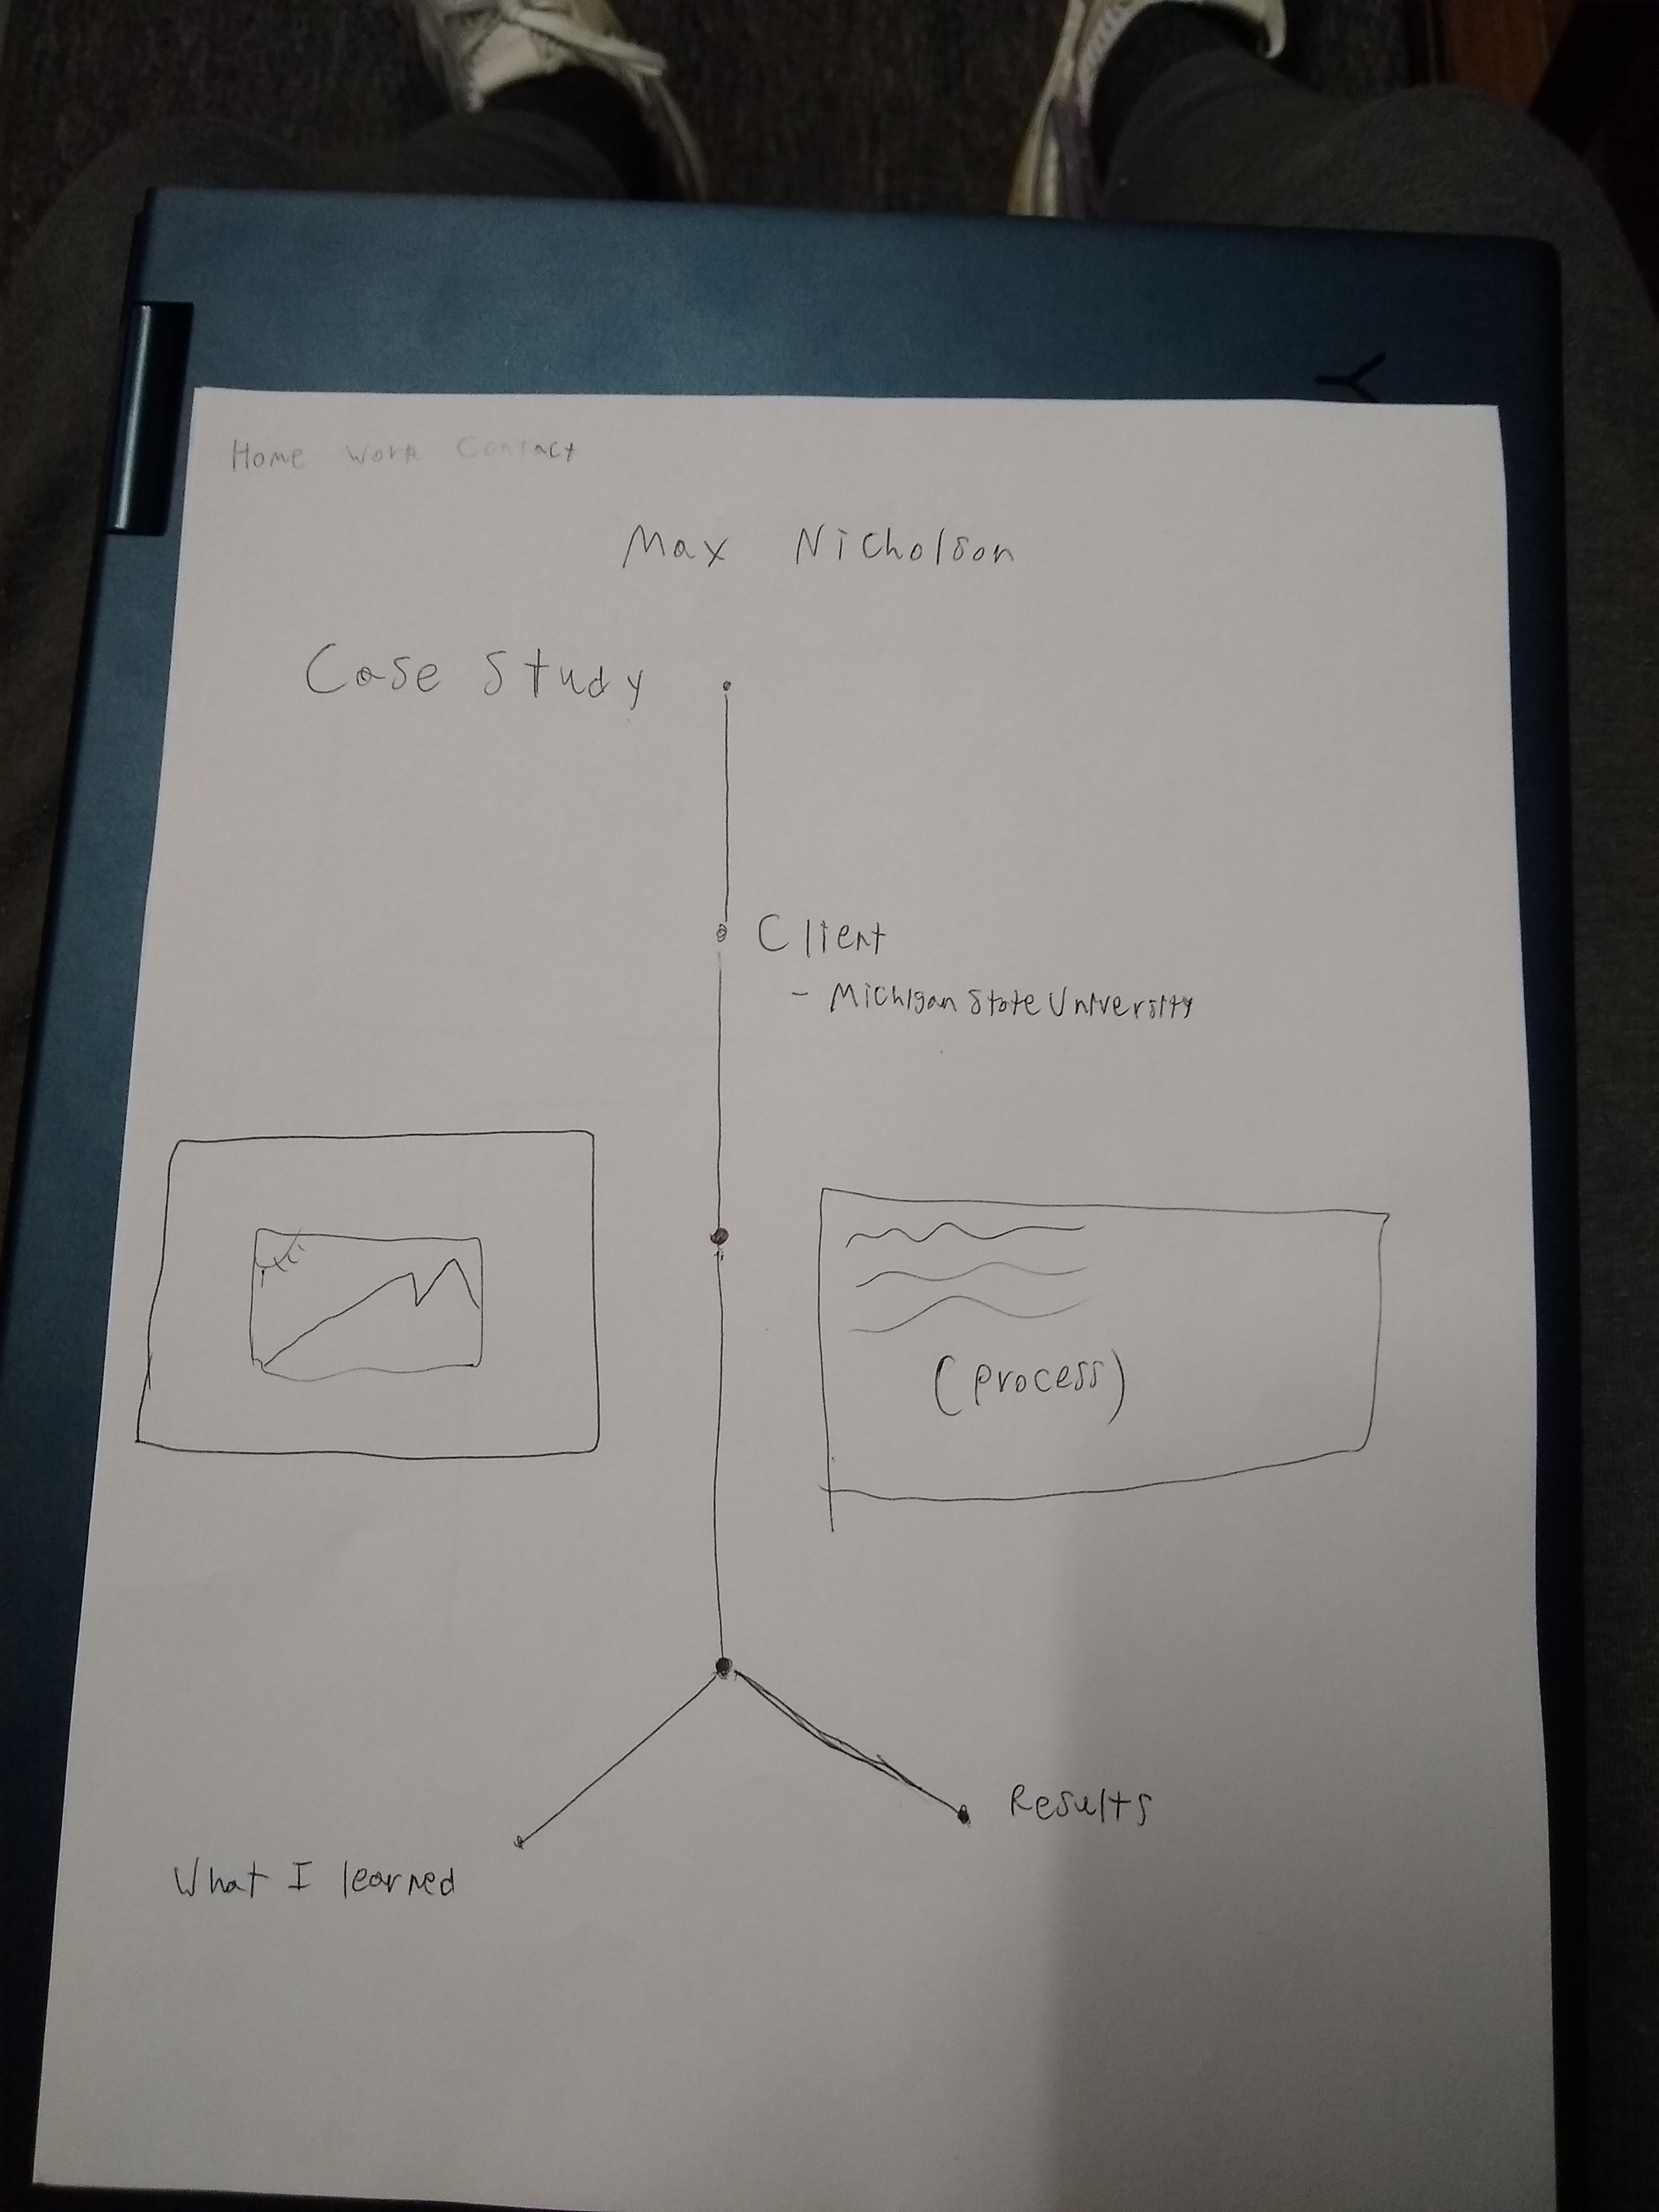 Home Work Contact
Max Nicholson
Case Study
Client
- Michigan State University
(process)
Results
What I learned